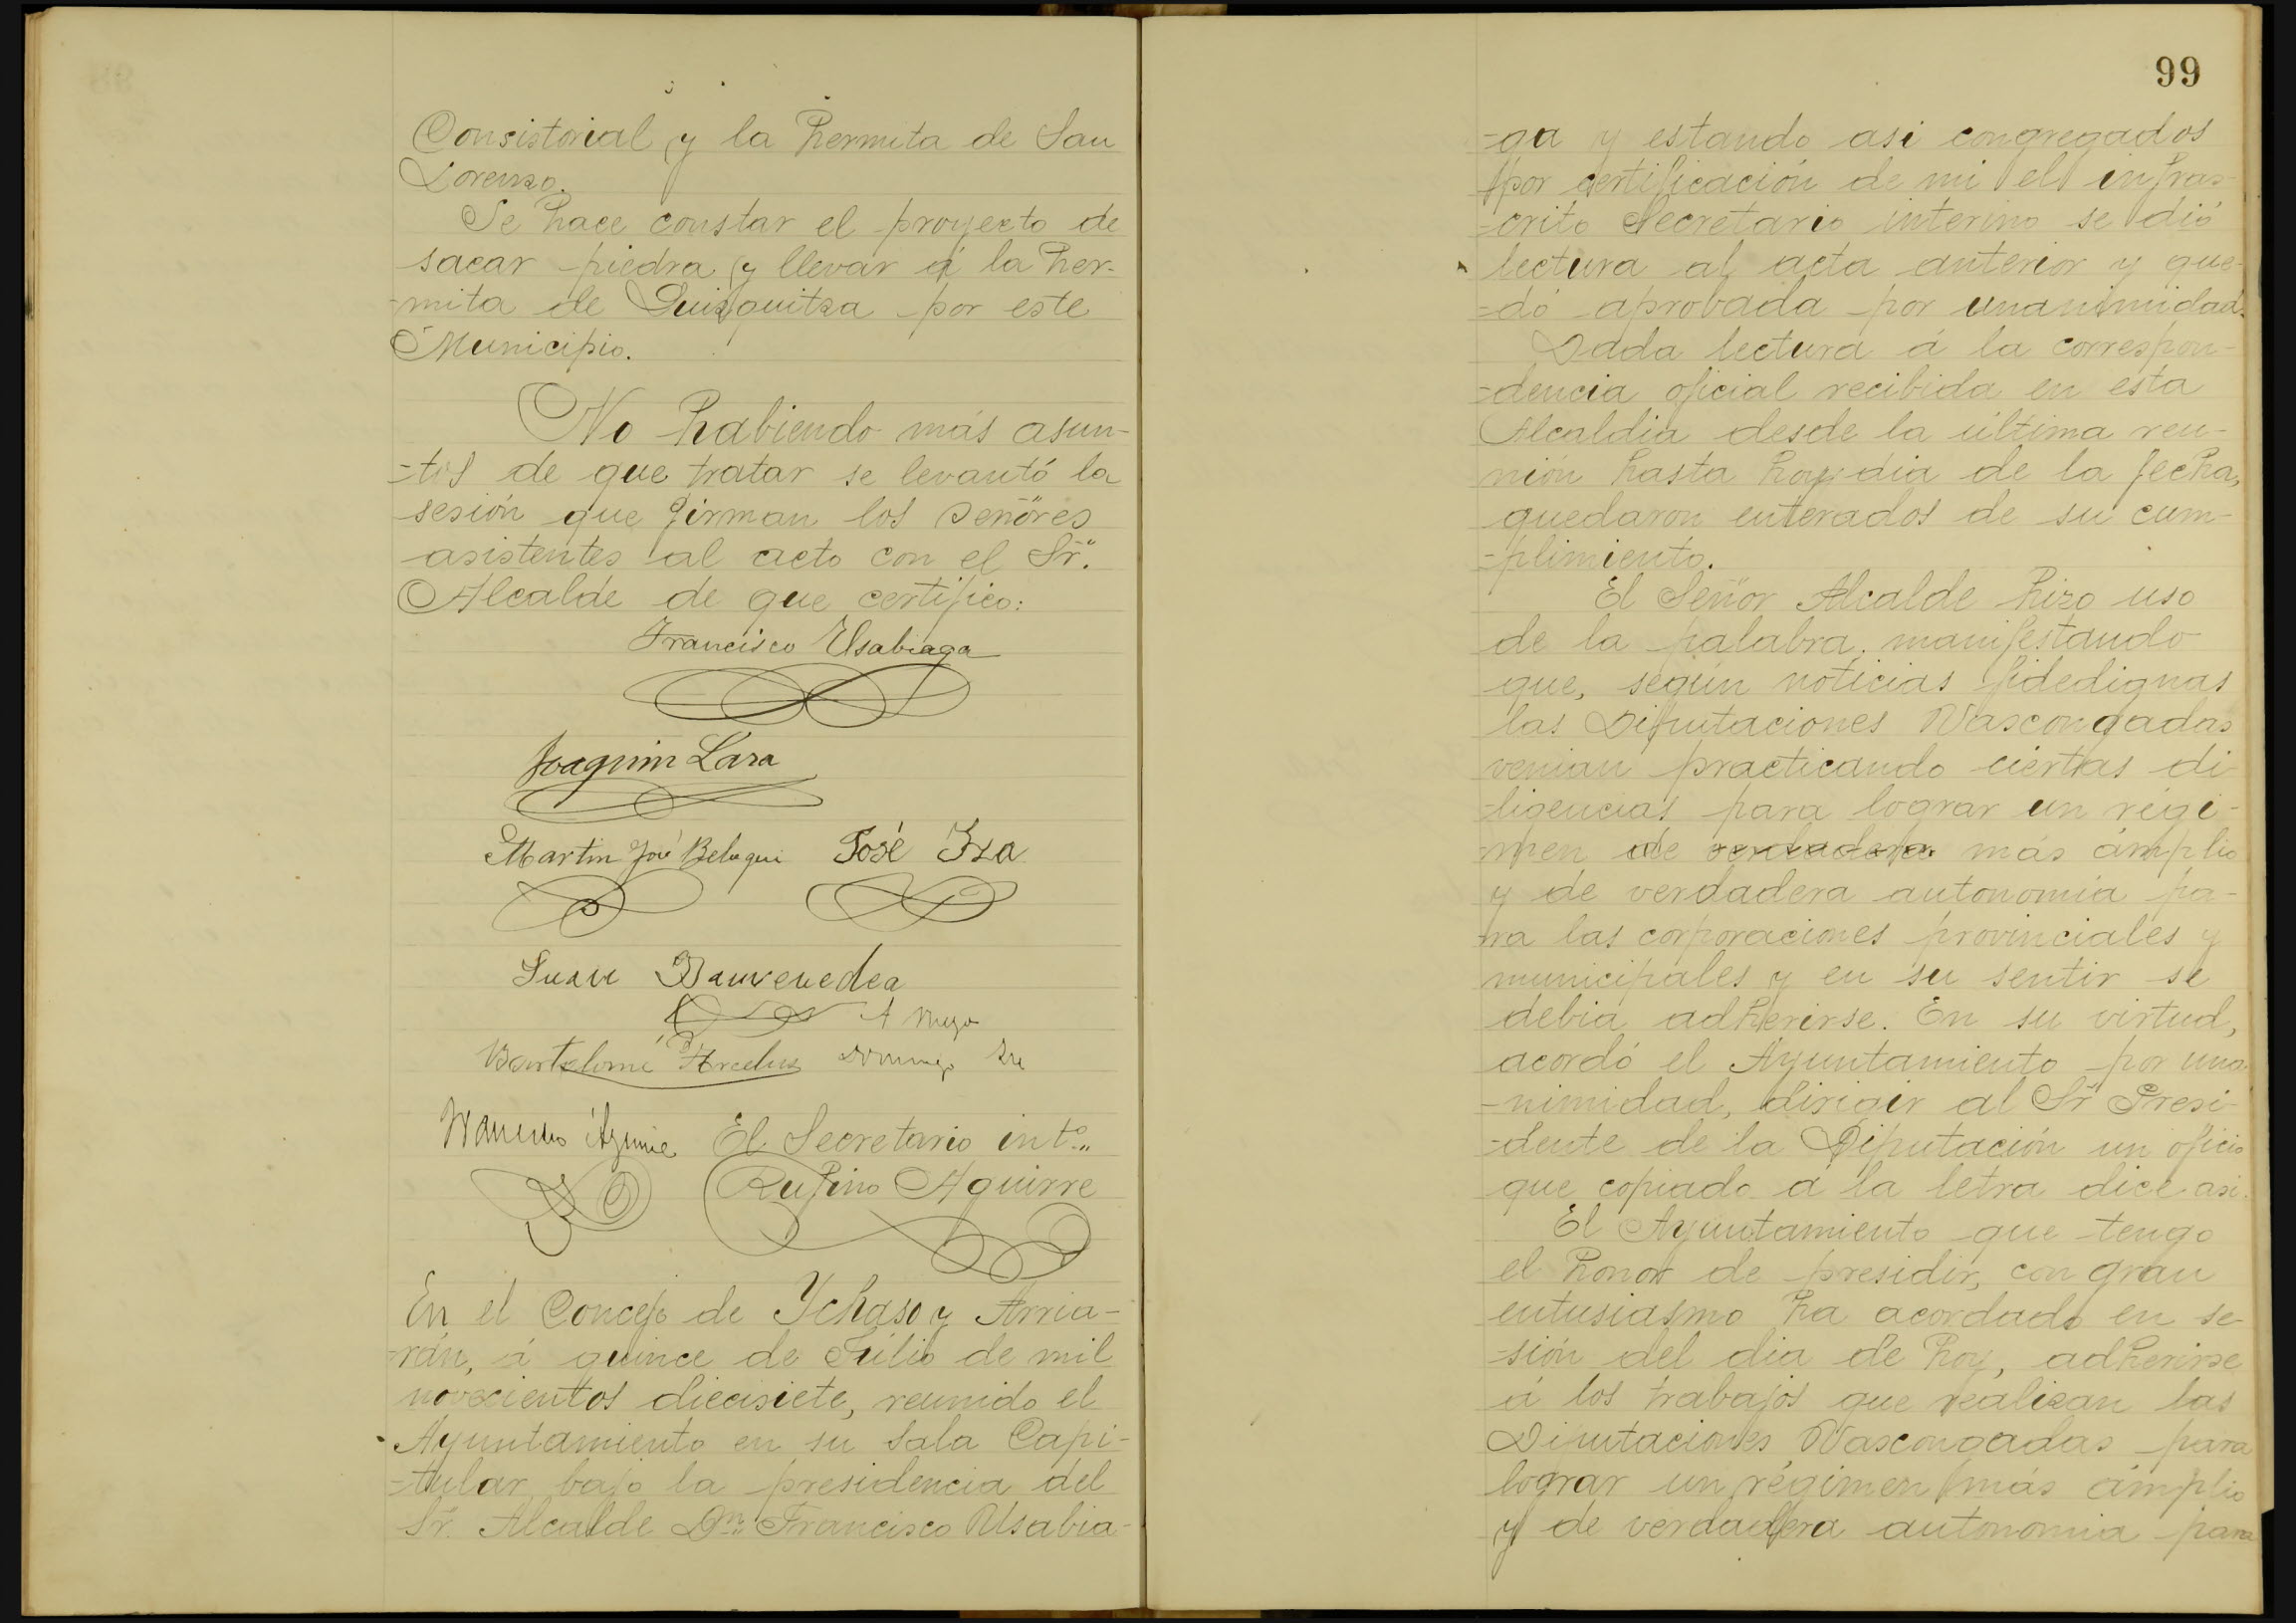 Consistorial y la hermita de San
Lorenzo.
Se hace constar el proyecto de
sacar piedra y llevar á la her-
-mita de Quizquitza por este
Municipio.
No habiendo más asun-
-tos de que tratar se levantó la
sesión que firman los señores
asistentes al acto con el Sr.
Alcalde de que certifico:
Francisco Usabiaga
Joaquin Lasa
Martin José Beloqui José Isa
Juan
A ruego
Bartolomé Arcelus
El Secretario int.º
Rufino Aguirre
En el Concejo de Ychaso y Arria-
-rán, á quince de Júlio de mil
novecientos diecisiete, reunido el
Ayuntamiento en su Sala Capi-
-tular bajo la presidencia del
Sr. Alcalde Dn. Francisco Usabia-
99
-ga y estando asi congregados
por certificación de mi el infras-
-crito Secretario interino se dió
lectura al acta anterior y que-
-dó aprobada por unanimidad.
Dada lectura á la correspon-
-dencia oficial recibida en esta
Alcaldia desde la última reu-
nión hasta hoy dia de la fecha,
quedaron enterados de su cum-
-plimiento.
El Señor Alcalde hizo uso
de la palabra, manifestando
que, según noticias fidedignas
las Diputaciones Vascongadas
venian practicando ciertas di
-ligencias para lograr un régi-
-men de verdadera más ámplio
y de verdadera autonomia pa-
-ra las corporaciones provinciales y
municipales y en su sentir se
debia adherirse. En su virtud,
acordó el Ayuntamiento por una-
-nimidad, dirigir al Sr Presi-
-dente de la Diputación un oficio
que copiado á la letra dice asi.
El Ayuntamiento que tengo
el honor de presidir, con gran
entusiasmo ha acordado en se-
-sión del dia de hoy, adherirse
á los trabajos que realizan las
Diputaciones Vascongadas para
lograr un régimen más ámplio
y de verdadera autonomia para